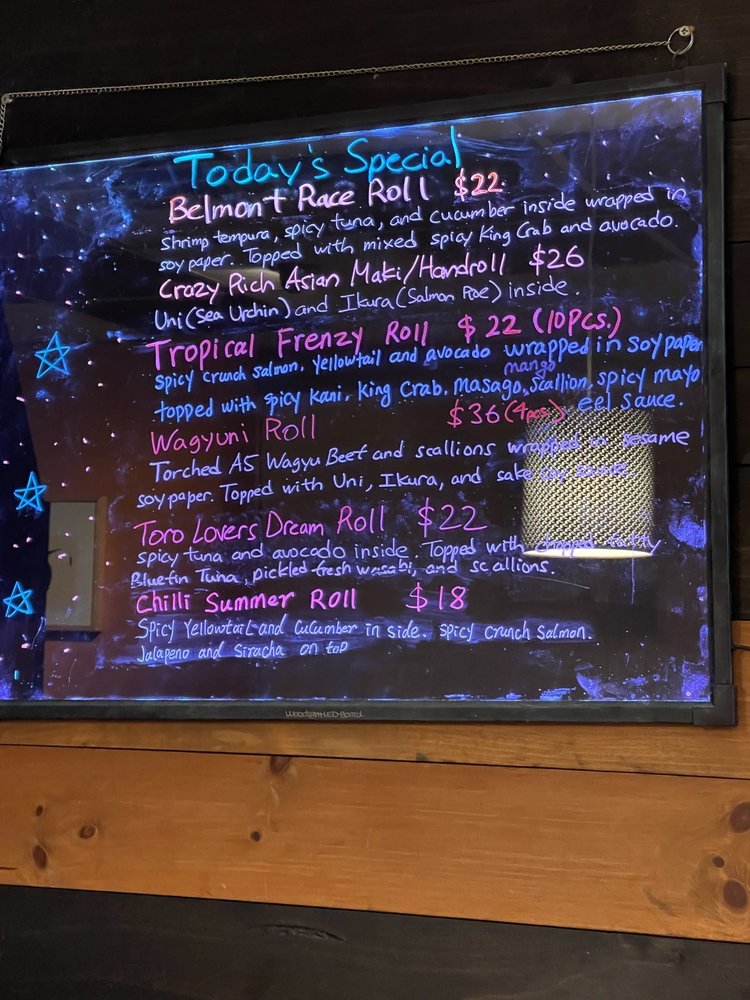 Today's Special
Belmont Race Roll $22
Shrimp tempura, spicy tuna, and cucumber inside wrapped in
soy paper. Topped with mixed spicy King Crab and avocado.
Crazy Rich Asian Maki/Handroll $26
Uni (Sea Urchin) and Ikura (Salmon Roe) inside.
Tropical Frenzy Roll $22 (10 Pcs.)
spicy crunch salmon, yellowtail and avocado wrapped in soy paper
mango
topped with spicy kani, King Crab, masago, scallion, spicy mayo
eel sauce.
Wagyuni Roll $36 (4 pcs.)
Torched A5 Wagyu Beef and scallions wrapped in sesame
soy paper. Topped with Uni, Ikura, and sake soy sauce.
Toro Lovers Dream Roll $22
spicy tuna and avocado inside. Topped with chopped fatty
Bluefin Tuna, pickled fresh wasabi, and scallions.
Chilli Summer Roll $18
Spicy Yellowtail and Cucumber in side. spicy crunch salmon.
Jalapeno and Siracha on top